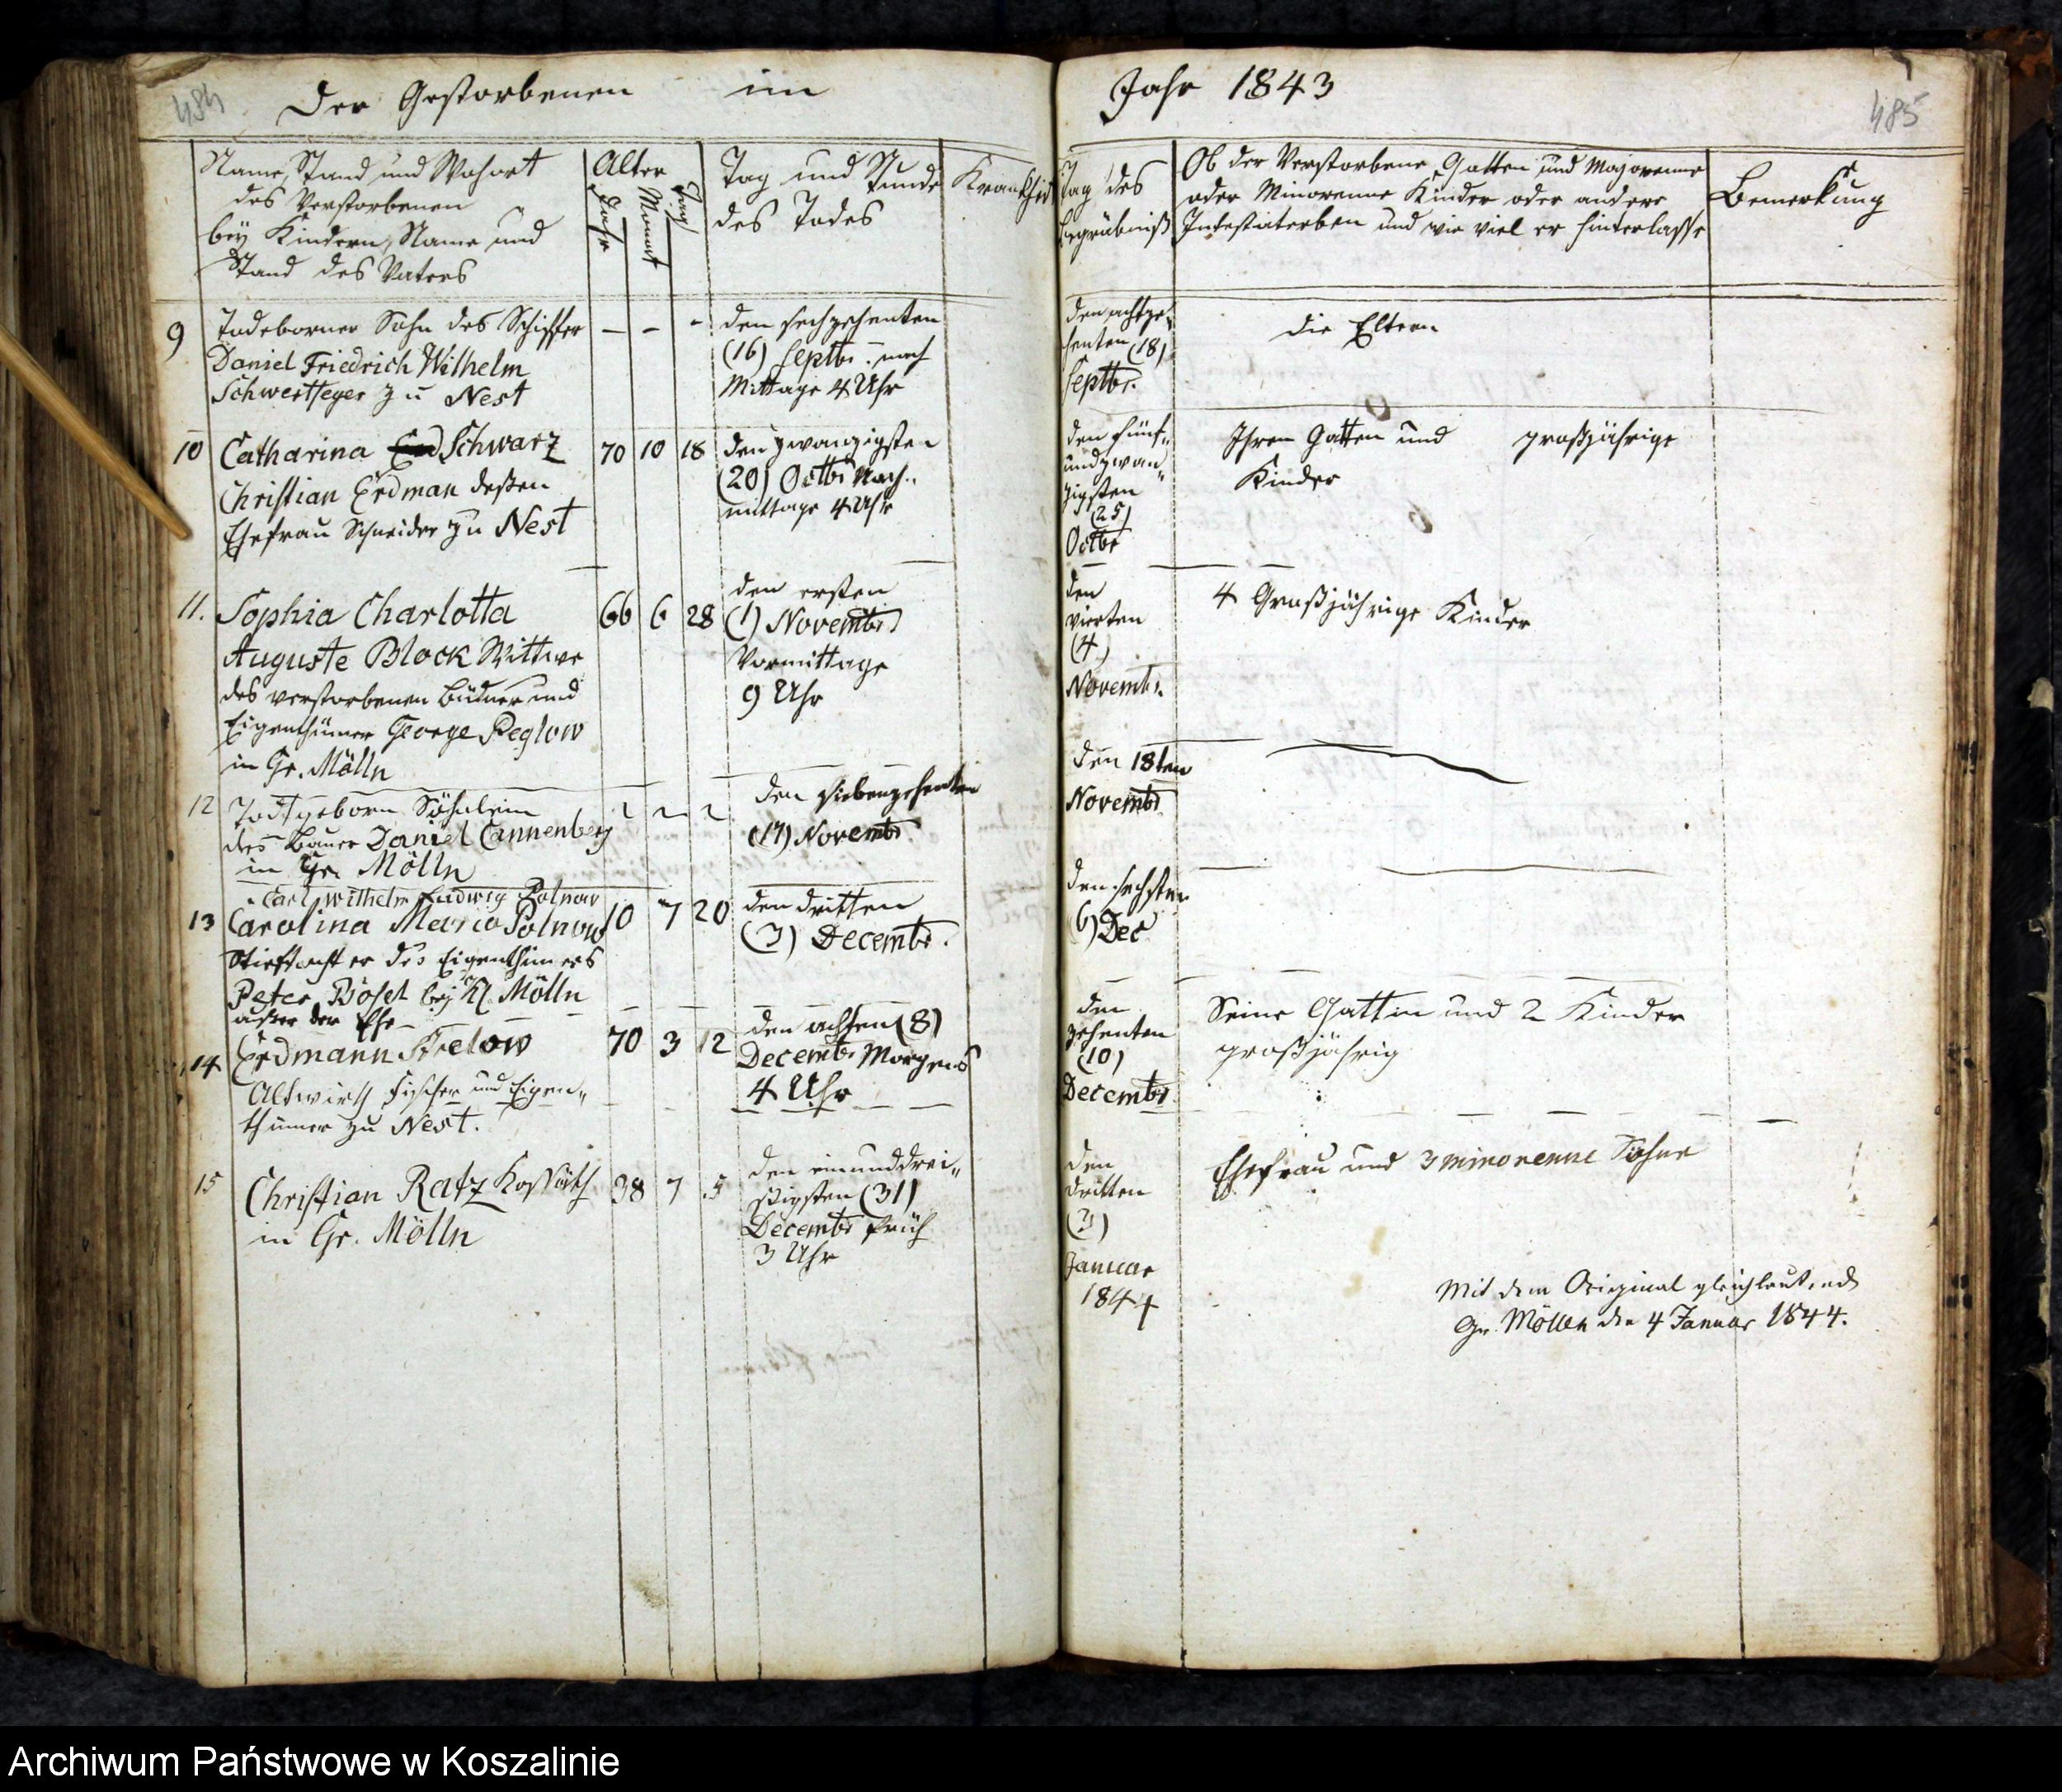 484
Der Gestorbenen im
Name, Stand und Wohort
des Verstorbenen
bey Kindern, Name und
Stand des Vaters
Alter
Jahr
Monat
Tag
Tag und Stunde
des Todes
Krankheit
9 Todeborner Sohn des Schiffer
Daniel Friedrich Wilhelm
Schwertfeger zu Nest
– – -
den sechzehenten
(16) Septbr. nach
Mittage 4 Uhr
10 Catharina Schwarz
Christian Erdman deßen
Ehefrau Schneider zu Nest
70 10 18
den zwanzigsten
(20) Octbr Nach-
mittage 4 Uhr
11. Sophia Charlotta
Auguste Block Wittwe
des verstorbenen Büdner und
Eigenthümer George Reglow
in Gr. Mölln
66 6 28
den ersten
(1) Novembr
Vormittage
9 Uhr
12 Todtgeborn Söhnlein
des Bauer Daniel Cannenberg
in Gr. Mölln
den siebenzehenten
(17) Novembr
Carl Wilhelm Ludwig Polnow
13 Carolina Maria Polnow
Stieftochter des Eigenthümers
Peter Bösel bey Kl. Mölln
außer der Ehe
10 7 20
den dritten
(3) Decembr.
14 Erdmann Strelow
Altwirth Fischer und Eigen-
thümer zu Nest.
70 3 12
den achten (8)
Decembr Morgens
4 Uhr
15 Christian Ratz Kossäth
in Gr. Mölln
38 7 5
den einunddrei-
ßigsten (31)
Decembr früh
3 Uhr
Jahr 1843
485
Tag des
Begräbniß
Ob der Verstorbene Gatten und Majorenne
oder Minorenne Kinder oder andere
Intestaterben und wie viel er hinterlasse
Bemerkung
den achtze-
henten (18)
Septbr.
die Eltern
den fünf-
undzwan-
zigsten
(25)
Octbr
Ihren Gatten und großjährige
Kinder
den
vierten
(4)
Novembr.
4 Großjährige Kinder
den 18ten
Novembr
den sechsten
(6) Dec
den
zehenten
(10)
Decembr
Seine Gattin und 2 Kinder
großjährig
den
dritten
(3)
Januar
1844
Ehefrau und 3 minorenne Söhne
Mit dem Original gleichlautend
Gr. Möllen den 4 Januar 1844.
Archiwum Państwowe w Koszalinie